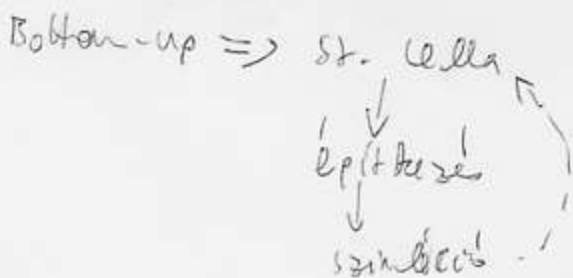 Bottom-up => St. cella
építkezés
szimuláció